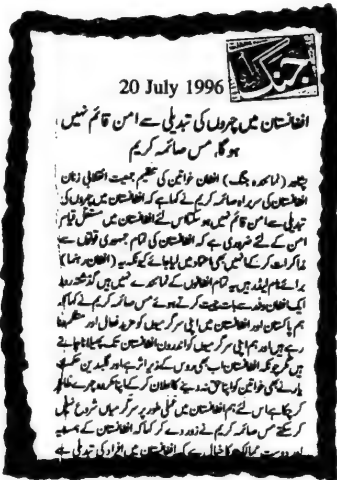 جنگ
20 July 1996
افغانستان میں چہروں کی تبدیلی سے امن قائم نہیں
ہوگا، مس صائمہ کریم
پشاور (نمائندہ جنگ) افغان خواتین کی تنظیم جمعیت انقلابی زنان
افغانستان کی سربراہ صائمہ کریم نے کہا ہے کہ افغانستان میں چہروں کی
تبدیلی سے امن قائم نہیں ہو سکتا اس لئے افغانستان میں مستقل قیام
امن کے لئے ضروری ہے کہ افغانستان کی تمام جمہوری قوتوں سے
مذاکرات کر کے انہیں بھی اعتماد میں لیا جائے کیونکہ یہ (افغان رہنما)
برائے نام لیڈر ہیں یہ تمام افغانوں کے نمائندے نہیں ہیں گذشتہ روز
ایک افغان وفد سے بات چیت کرتے ہوئے مس صائمہ کریم نے کہا کہ
ہم پاکستان اور افغانستان میں اپنی سرگرمیوں کو مزید فعال اور منظم بنا
رہے ہیں اور ہم اپنی سرگرمیوں کو اندرون افغانستان تک پھیلانا چاہتے
ہیں مگر چونکہ افغانستان اب بھی روس کے زیر اثر ہے اور گلبدین حکمت
یار نے بھی خواتین کو اپنا حق نہ دینے کا اعلان کر کے اپنا مکروہ چہرہ ظاہر
کر چکا ہے اس لئے ہم افغانستان میں عملی طور پر سرگرمیاں شروع نہیں
کر سکتے مس صائمہ کریم نے زور دے کر کہا کہ افغانستان کے ہمسایہ
اور دوست ممالک کا خیال ہے کہ افغانستان میں افراد کی تبدیلی سے